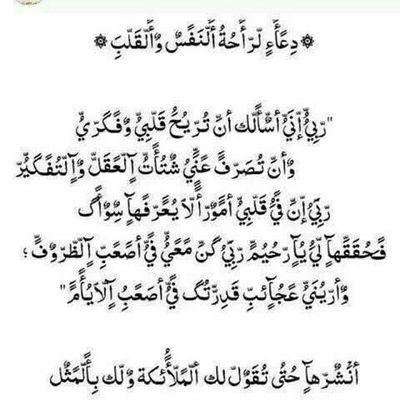 ۞ دعاء لراحة النفس والقلب ۞
"ربي إني أسألك أن تريح قلبي وفكري
وأن تصرف عني شتات العقل والتفكير
ربي إن في قلبي أمورا لا يعرفها سواك
فحققها لي يا رحيم ربي كن معي في أصعب الظروف ؛
وأريني عجائب قدرتك في أصعب الأيام"
أنشرها حتى تقول لك الملائكة ولك بالمثل